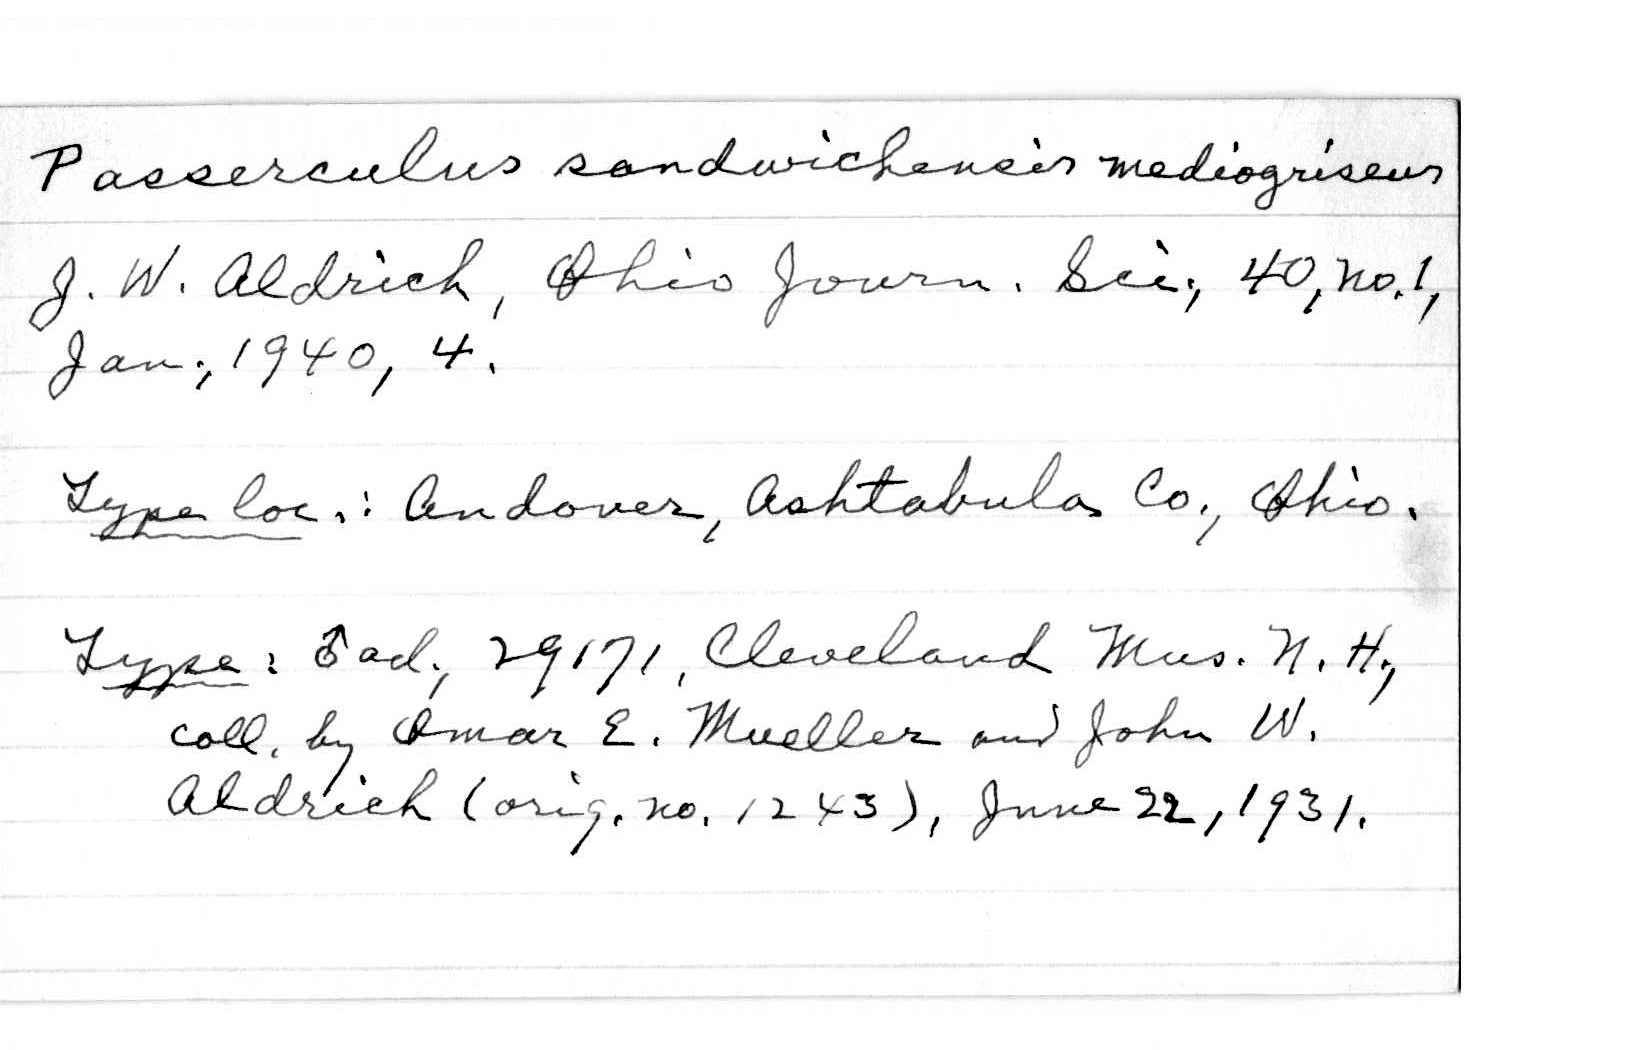 Passerculus sandwichensis mediogriseus
J. W. Aldrich, Ohio Journ. Sci., 40, no. 1,
Jan., 1940, 4.
Type loc.: Andover, Ashtabula Co., Ohio.
Type: ♂ ad., 29171, Cleveland Mus. N. H.,
coll. by Omar E. Mueller and John W.
Aldrich (orig. no. 1243), June 22, 1931.